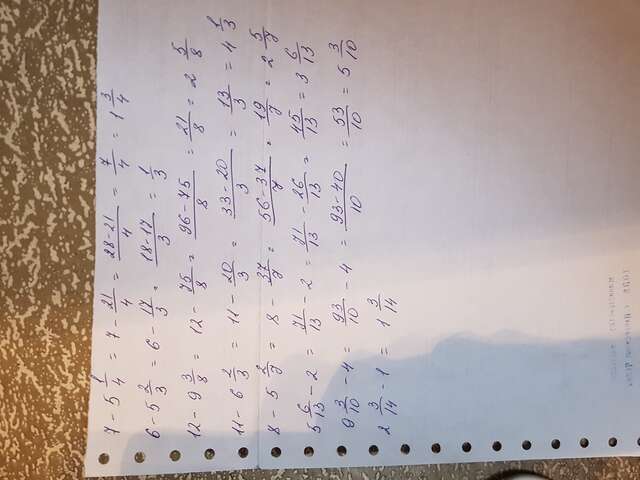 7 - 5 1/4 = 7 - 21/4 = (28-21)/4 = 7/4 = 1 3/4
6 - 5 2/3 = 6 - 17/3 = (18-17)/3 = 1/3
12 - 9 3/8 = 12 - 75/8 = (96-75)/8 = 21/8 = 2 5/8
11 - 6 2/3 = 11 - 20/3 = (33-20)/3 = 13/3 = 4 1/3
8 - 5 2/7 = 8 - 37/7 = (56-37)/7 = 19/7 = 2 5/7
5 6/13 - 2 = 71/13 - 2 = 71/13 - 26/13 = 45/13 = 3 6/13
9 3/10 - 4 = 93/10 - 4 = (93-40)/10 = 53/10 = 5 3/10
2 3/14 - 1 = 1 3/14